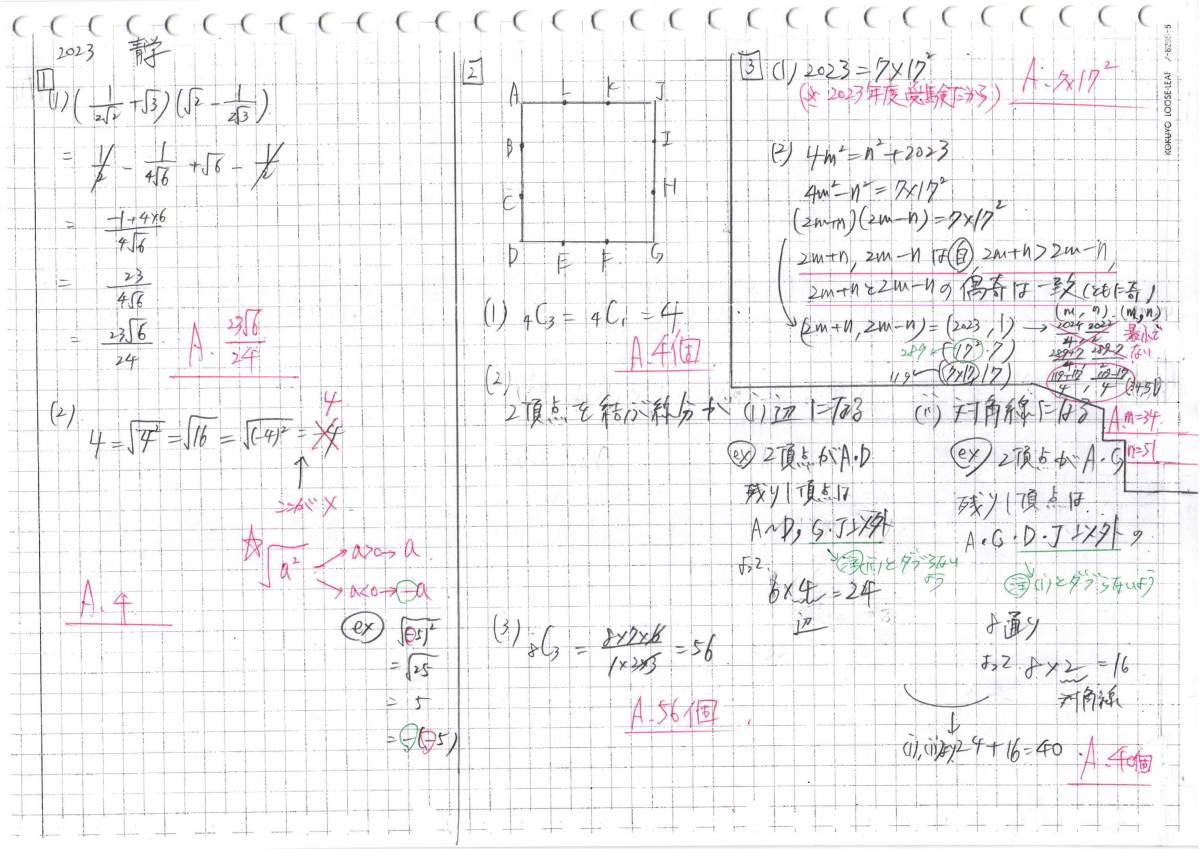 2023 青学
1
(1) (1/2√2 + √3)(√2 - 1/2√3)
= 1/2 - 1/4√6 + √6 - 1/2
= -1+4×6/4√6
= 23/4√6
= 23√6/24
A. 23√6/24
(2)
4 = √4² = √16 = √(-4)² = -4
4
↑
ここが×
☆ √a² → a>0→ a
→ a<0→ -a
A. 4
ex √(-5)²
= √25
= 5
= -(-5)
2
A L K J
B I
C H
D E F G
(1) ₄C₃ = ₄C₁ = 4
A. 4個
(2)
2頂点を結ぶ線分が (i) 辺上になる (ii) 対角線になる
ex 2頂点がA・D
残り1頂点は
A~D, G・J以外
注 (ii)とダブらないよう
よって
6×4 = 24
辺
ex 2頂点がA・G
残り1頂点は
A・G・D・J以外の
注 (i)とダブらないよう
8通り
よって 8×2 = 16
対角線
↓
(i),(ii)より24+16=40
A. 40個
(3) ₈C₃ = 8×7×6/1×2×3 = 56
A. 56個
3
(1) 2023 = 7×17²
A. 7×17²
(☆ 2023年度受験だから)
(2) 4m² = n² + 2023
4m² - n² = 7×17²
(2m+n)(2m-n) = 7×17²
2m+n, 2m-n は自, 2m+n > 2m-n,
2m+nと2m-nの偶奇は一致(ともに奇)
(m, n) (m, n)
(2m+n, 2m-n) = (2023, 1) → 2024/4, 2022/2
最小でない
289← (17², 7) 289+7/4 289-7
119← (7×17, 17) 119+17/4, 119-17 (34, 51)
A. m=34
n=51
KOKUYO LOOSE-LEAF